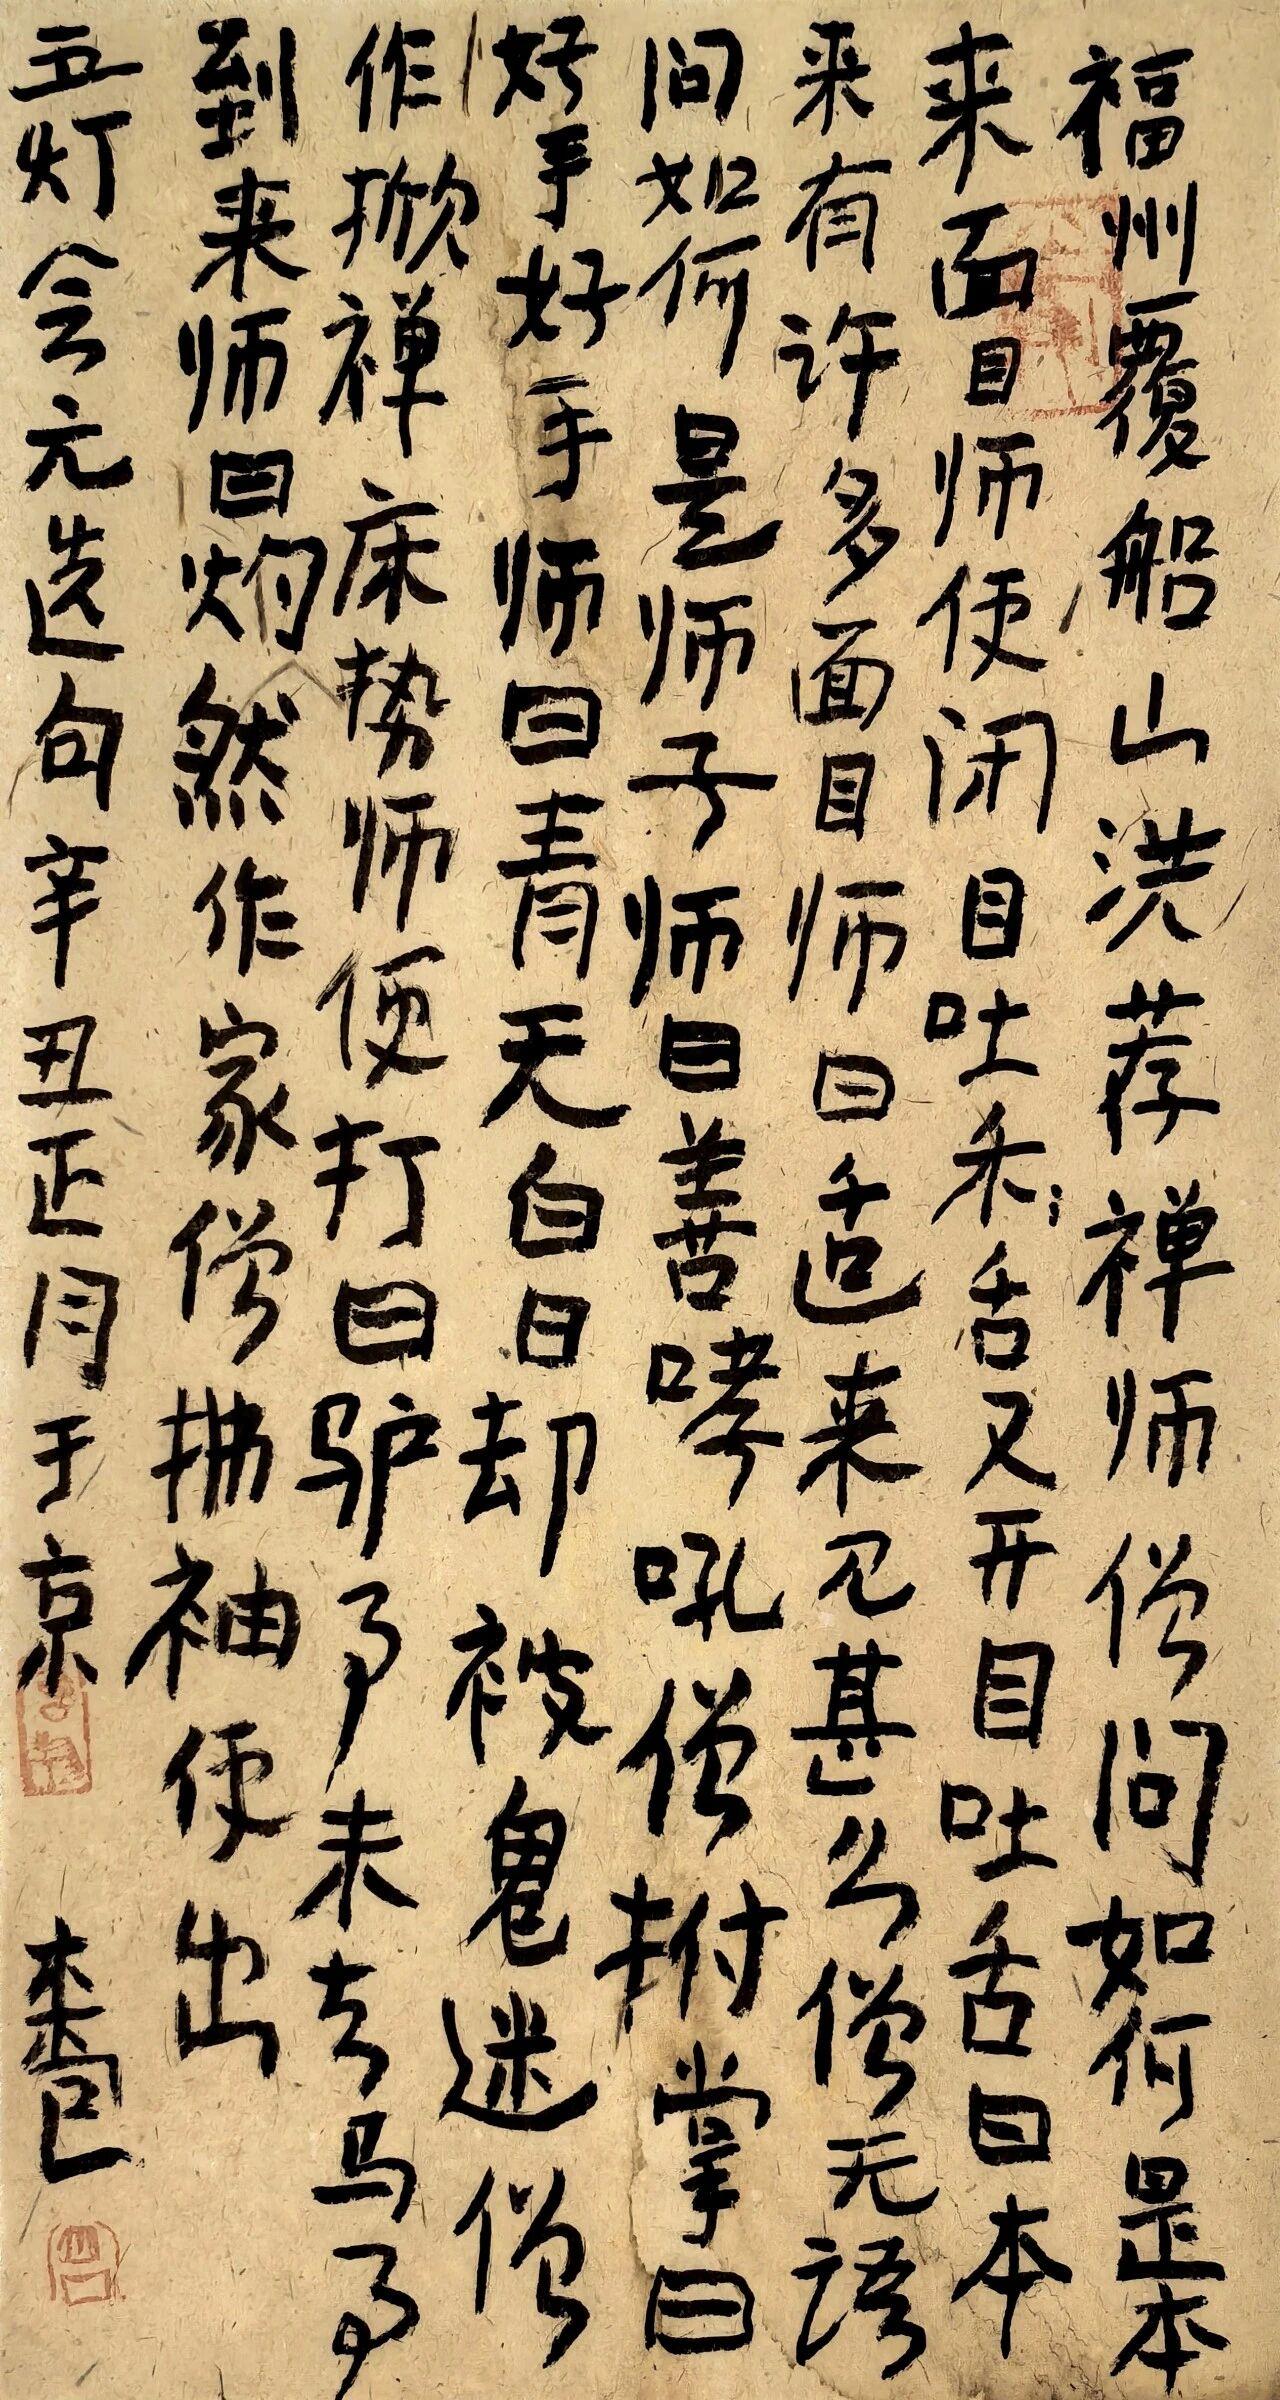 福州覆船山洪荐禅师僧问如何是本
来面目师便闭目吐舌又开目吐舌曰本
来有许多面目师曰适来见甚么僧无语
问如何是师子师曰善哮吼僧拊掌曰
好手好手师曰青天白日却被鬼迷僧
作掀禅床势师便打曰驴事未去马事
到来师曰灼然作家僧拂袖便出
五灯会元选句辛丑正月于京